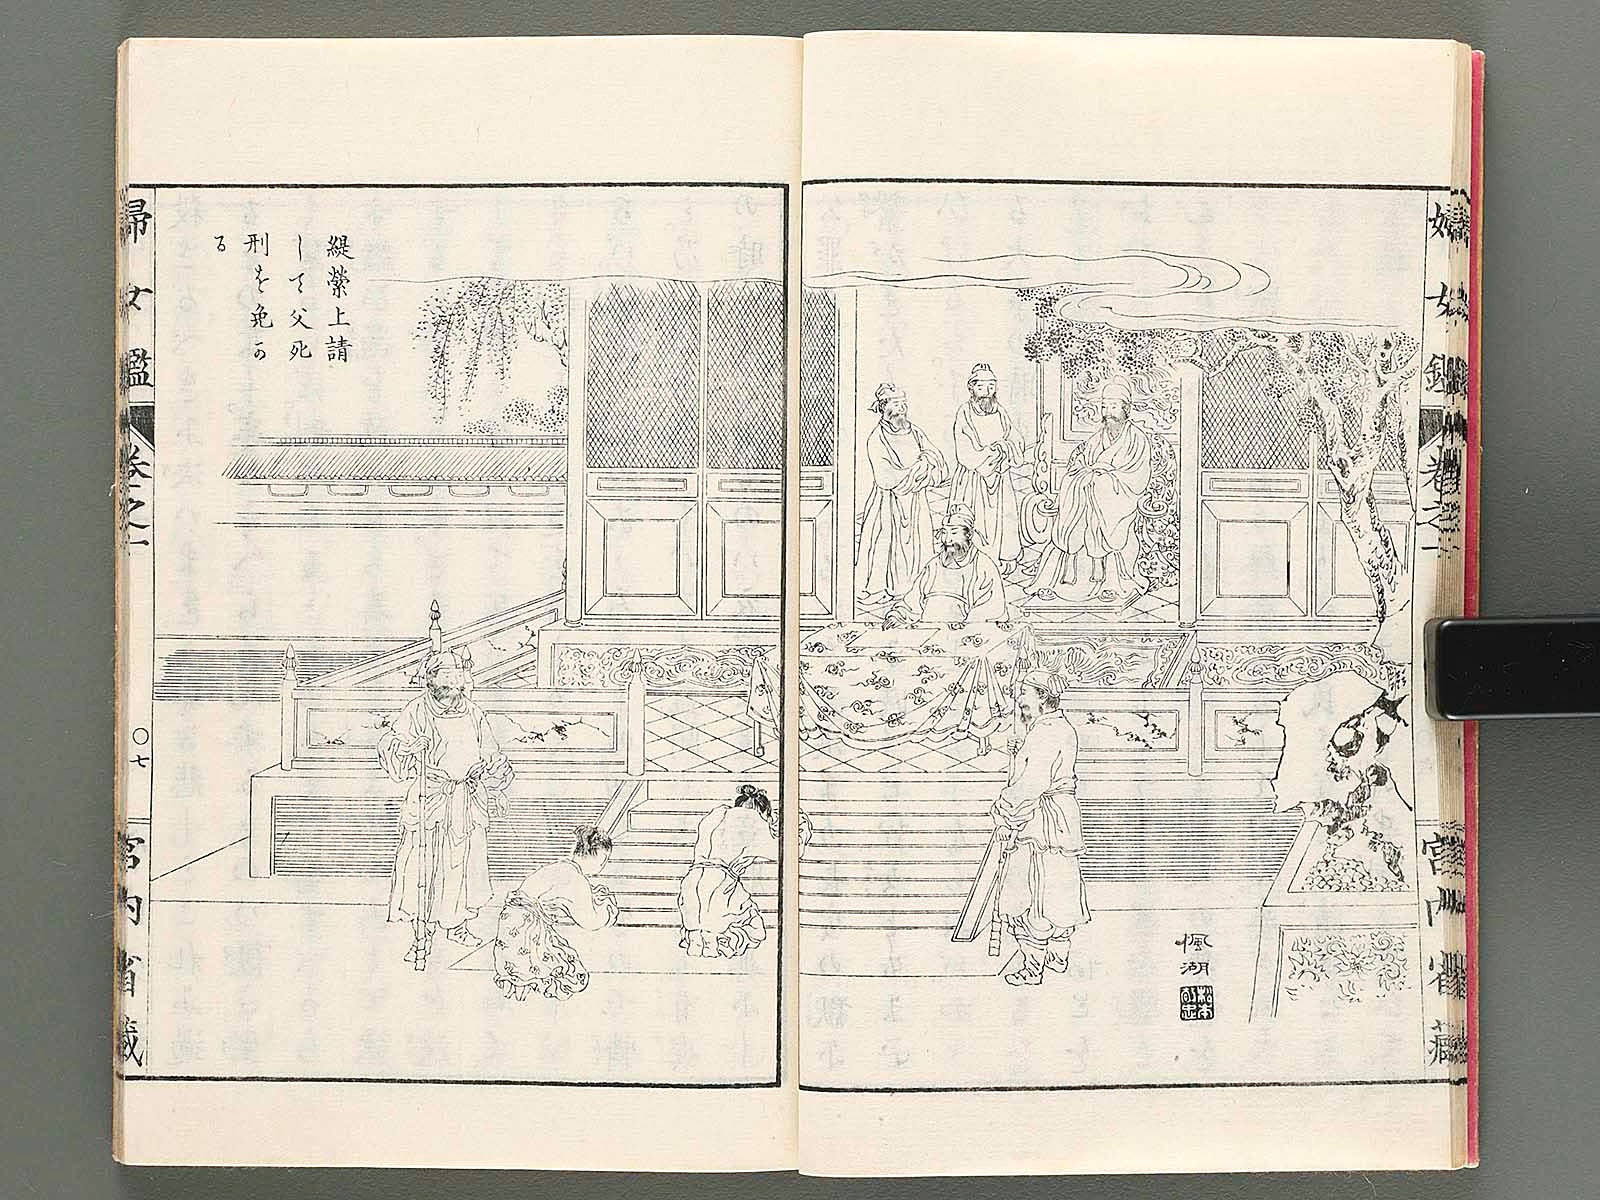 婦女鑑
卷之一
宮内省藏
楓湖
緹縈上請
して父死
刑を免か
る
婦女鑑
卷之一
〇七
宮内省藏